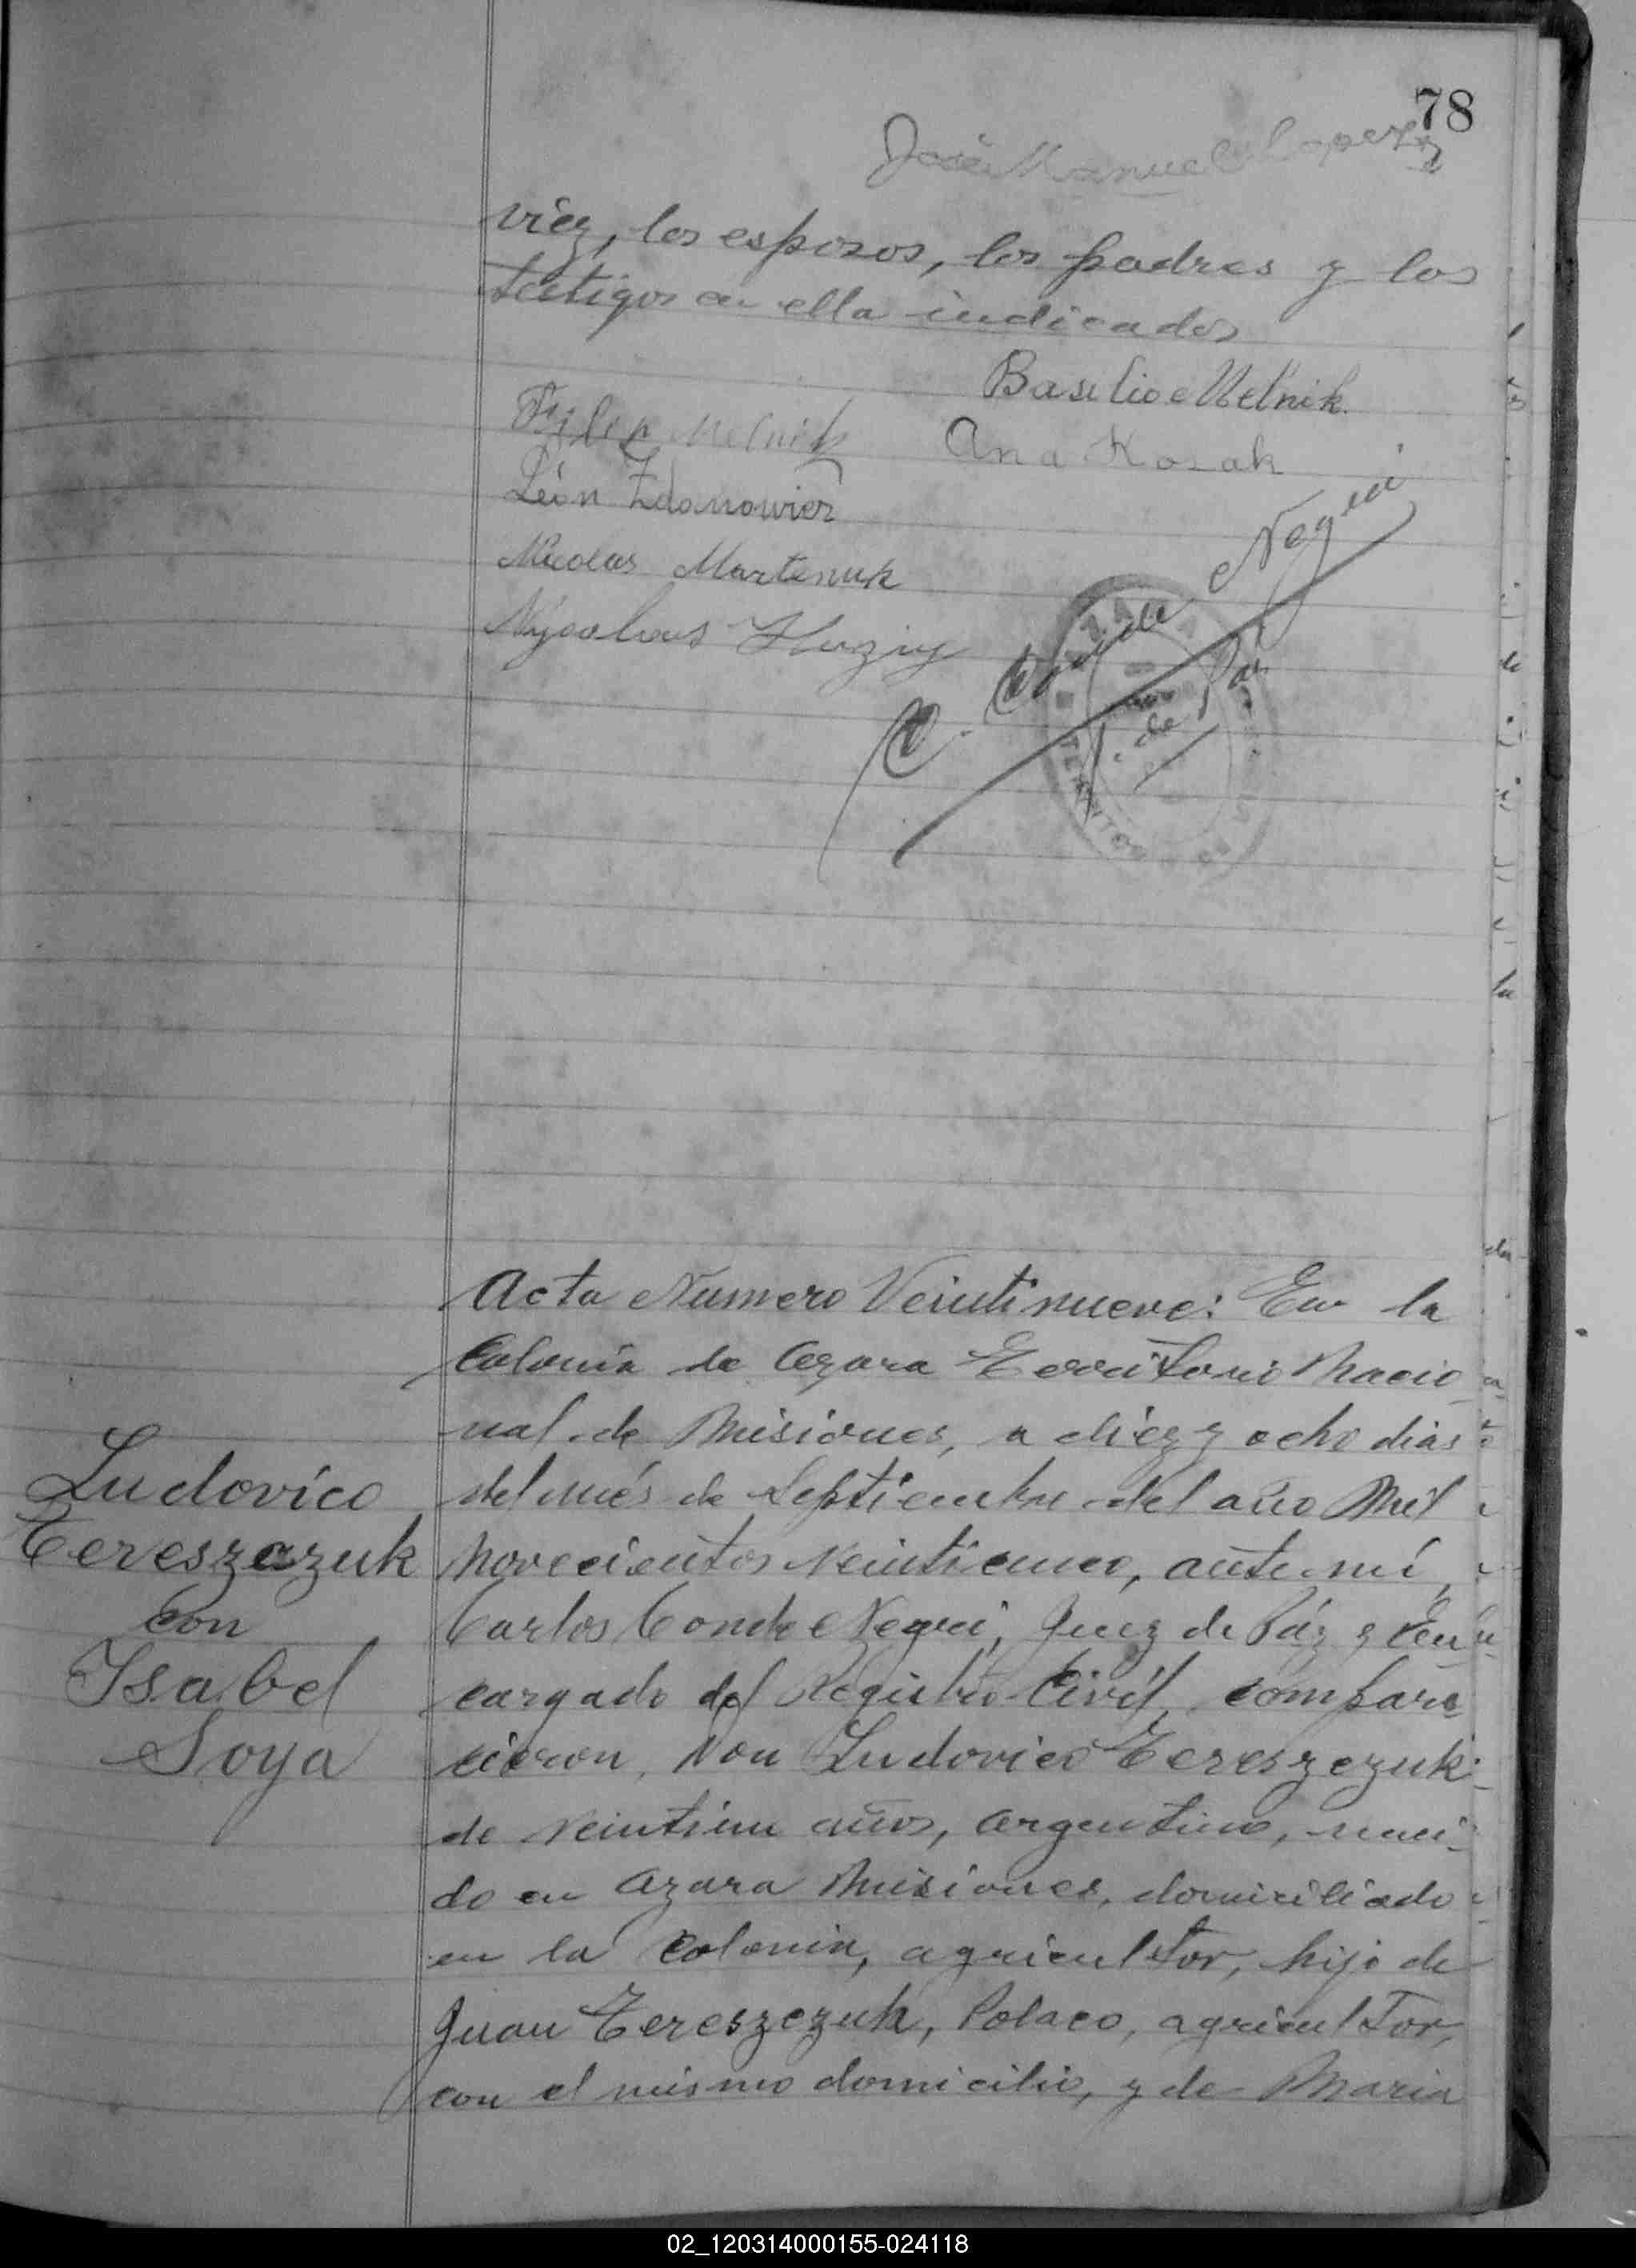 78
José Manuel Lopez
viez, los esposos, los padres y los
testigos en ella indicados
Basilio Melnik.
Filip Melnik
Ana Kozak
León Zdanowicz
Nicolas Martenuk
Nycolas
C. Conde Negri
J. de Paz
Acta Numero Veintinueve: En la
Colonia de Azara Territorio Nacio
nal de Misiones, a diez y ocho dias
del més de Septiembre del año Mil
Novecientos Veinticinco, ante mí,
Carlos Conde Negri, Juez de Páz y En
cargado del Registro Civíl, compare
cieron, Don Ludovico Tereszczuk
de Veintiun años, argentino, naci
do en Azara Misiones, domiciliado
en la Colonia, agricultor, hijo de
Juan Tereszczuk, Polaco, agricultor,
con el mismo domicilio, y de Maria
Ludovíco
Tereszczuk
con
Isabel
Soya
02_120314000155-024118